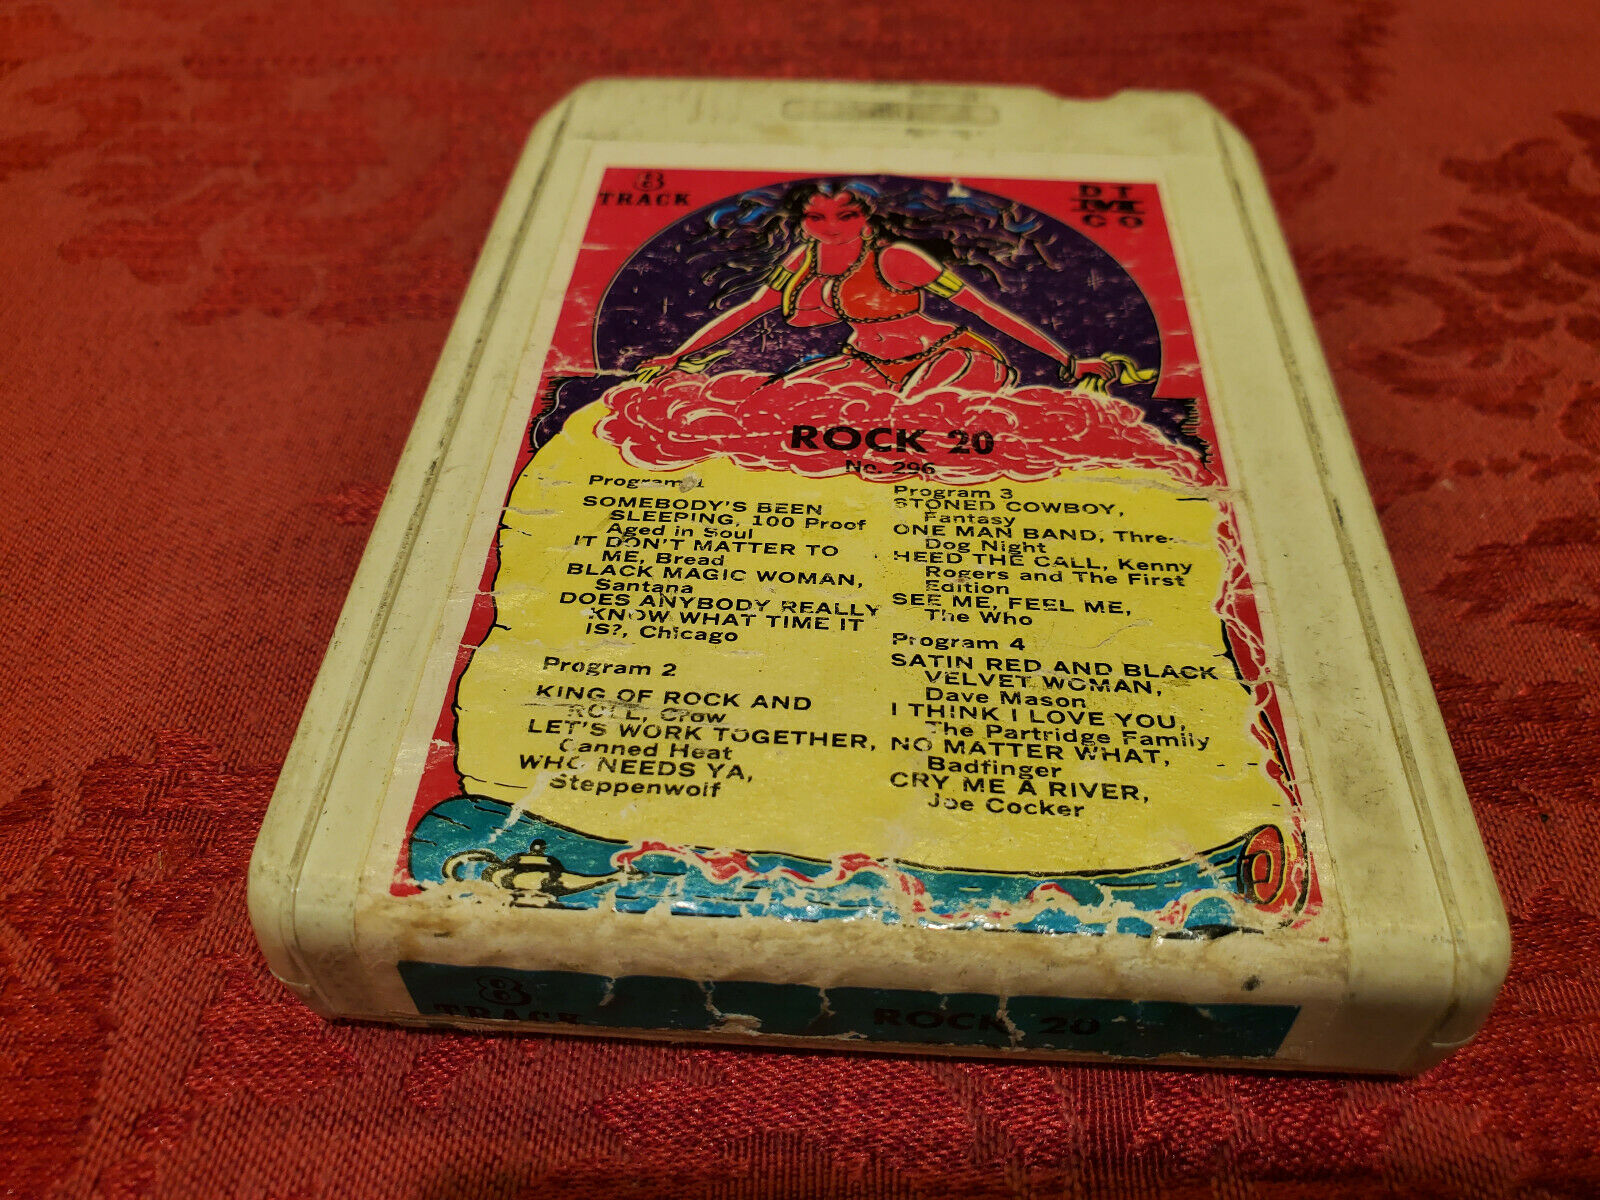 8
TRACK
DI
M
CO
ROCK 20
No. 296
Program 1
SOMEBODY'S BEEN
SLEEPING, 100 Proof
Aged in Soul
IT DON'T MATTER TO
ME, Bread
BLACK MAGIC WOMAN,
Santana
DOES ANYBODY REALLY
KNOW WHAT TIME IT
IS?, Chicago
Program 2
KING OF ROCK AND
ROLL, Crow
LET'S WORK TOGETHER,
Canned Heat
WHO NEEDS YA,
Steppenwolf
Program 3
STONED COWBOY,
Fantasy
ONE MAN BAND, Three
Dog Night
HEED THE CALL, Kenny
Rogers and The First
Edition
SEE ME, FEEL ME,
The Who
Program 4
SATIN RED AND BLACK
VELVET WOMAN,
Dave Mason
I THINK I LOVE YOU,
The Partridge Family
NO MATTER WHAT,
Badfinger
CRY ME A RIVER,
Joe Cocker
8
TRACK
ROCK 20